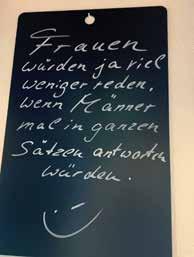 Frauen
würden ja viel
weniger reden,
wenn Männer
mal in ganzen
Sätzen antworten
würden.